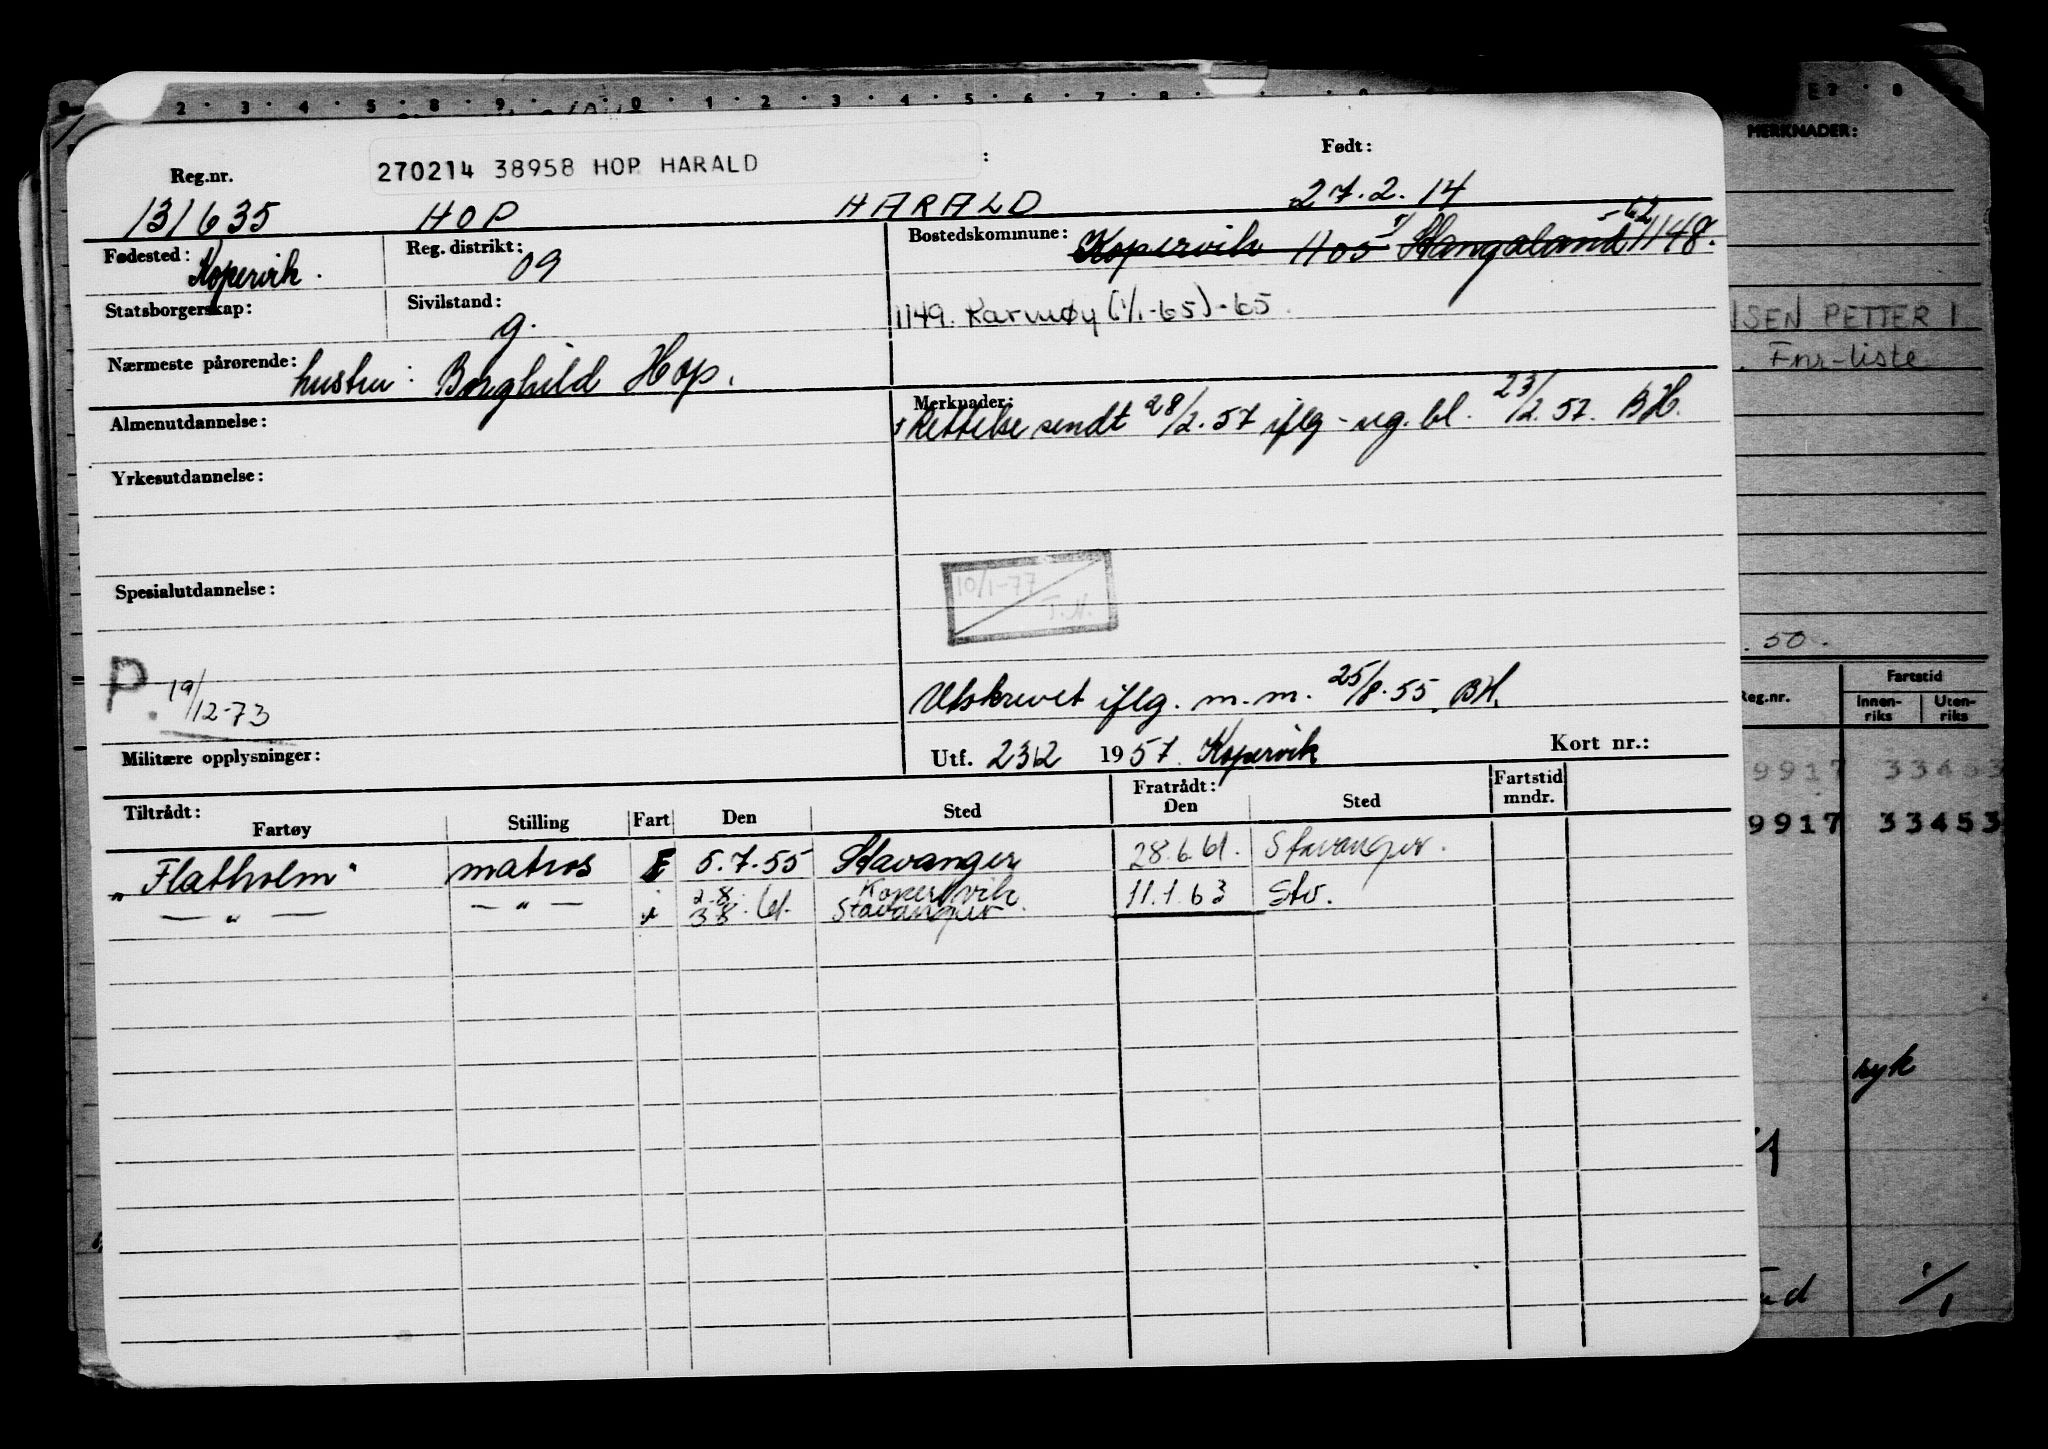 2 3 4 5 8 9 0 1 2 3 4 5 6 7 8
MERKNADER:
270214 38958 HOP HARALD :
Reg.nr. Født:
131635 HOP HARALD 27.2.14
Fødested: Kopervik. Reg. distrikt: 09 Bostedskommune: Kopervik 1105 1/ Stangaland - 62 1148.
Statsborgerskap: Sivilstand: g.
1149. Karmøy (1/1-65)-65.
Nærmeste pårørende: hustru: Borghild Hop.
Almenutdannelse: Merknader: Rettelse sendt 28/2.57 iflg - reg. bl. 23/2.57. BH.
Yrkesutdannelse:
Spesialutdannelse:
10/1-77
T.H.
P. 19/12-73
Utskrevet iflg. m.m. 25/8.55. BH.
Militære opplysninger: Utf. 23/2 1957. Kopervik Kort nr.:
Tiltrådt: Fratrådt:
Fartøy Stilling Fart Den Sted Den Sted Fartstid mndr.
"Flatholm" matros E 5.7.55 Stavanger 28.6.61. Stavanger.
— " — — " — " 2.8. Kopervik
3.8.61. Stavanger. 11.1.63 Stv.
NSEN PETTER I
. Fnr-liste
. 50.
Reg.nr. Fartstid
Innen-riks Uten-riks
9917 33453
9917 33453
syk
1/1